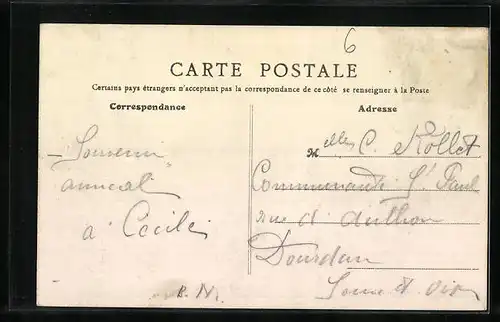 6
CARTE POSTALE
Certains pays étrangers n'acceptant pas la correspondance de ce côté se renseigner à la Poste
Correspondance
Adresse
Souvenir
amical
à Cécile
Melles C. Rollet
Communauté St Paul
rue d'Authon
Dourdan
Seine et Oise